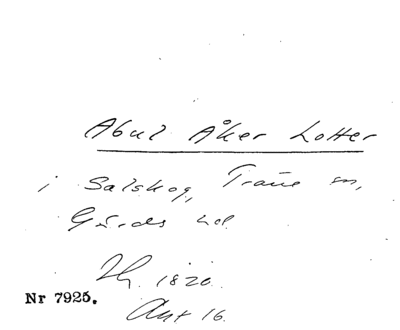 Abul Åker Lotter
i Salskog, Träne sn,
Gärds hd.
Th. 1820.
Nr 7925.
Ant 16.